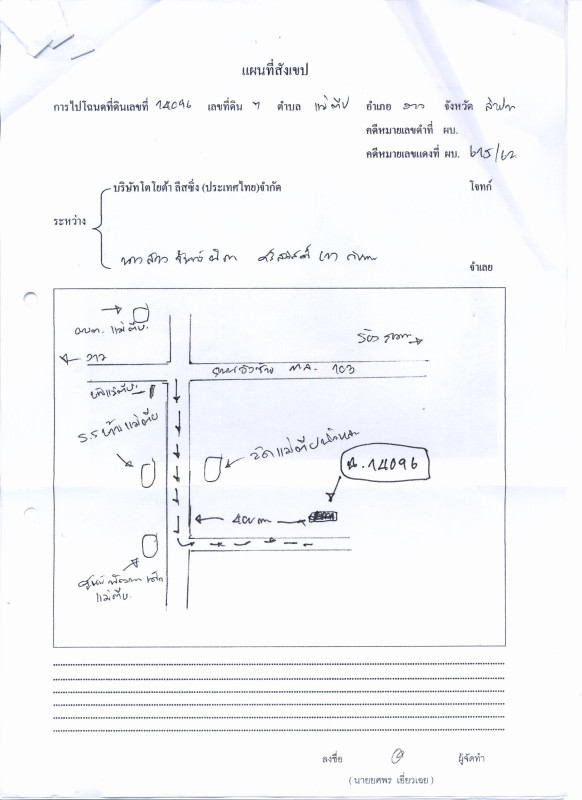 แผนที่สังเขป
การไปโฉนดที่ดินเลขที่ 14096 เลขที่ดิน ๆ ตำบล แม่ตีบ อำเภอ งาว จังหวัด ลำปาง
คดีหมายเลขดำที่ ผบ.
คดีหมายเลขแดงที่ ผบ. 675/62
บริษัทโตโยต้า ลีสซิ่ง (ประเทศไทย)จำกัด โจทก์
ระหว่าง
นางสาว
จำเลย
อบต. แม่ตีบ.
ร้องกวาง
งาว
ถนน ทล. 103
ร.ร บ้านแม่ตีบ
วัดแม่ตีบ
ฉ. 14096
400 m
ศูนย์พัฒนาเด็ก
แม่ตีบ.
ลงชื่อ ผู้จัดทำ
(นายยศพร เชี่ยวเฉย)